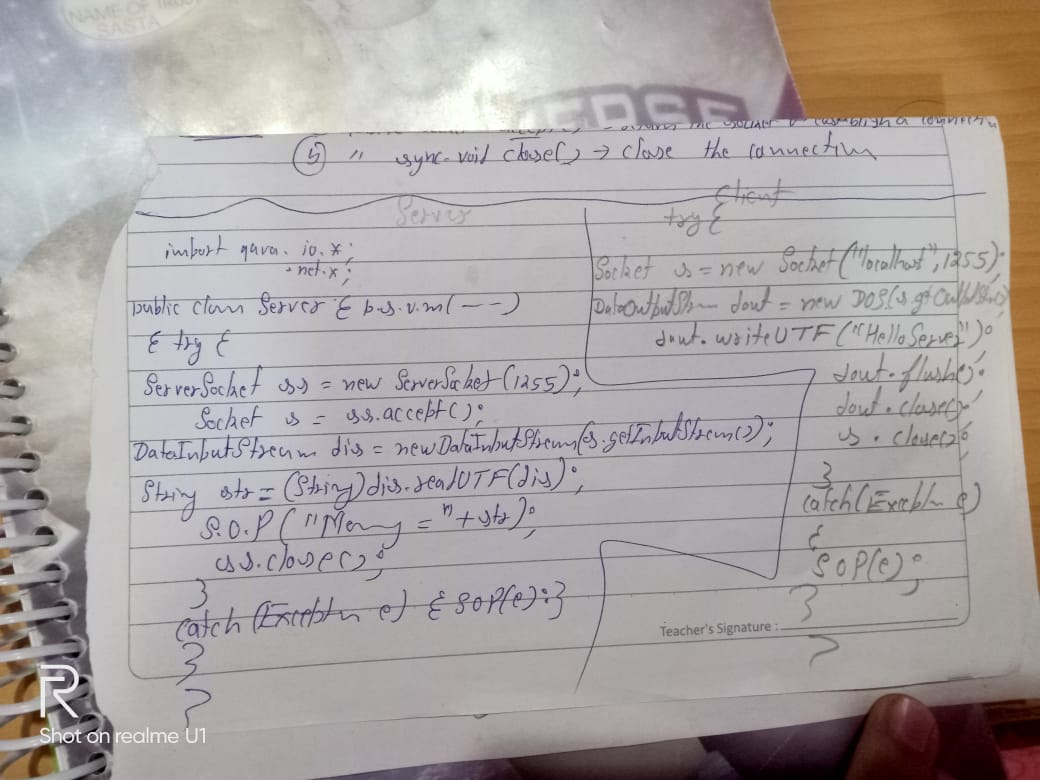 NAME OF INDU
RASTA
VERSE
⑤ " sync. void close() → close the connection
Server
import java.io.*;
.net.*;
public class Server { p.s.v.m(---)
{ try {
ServerSocket ss = new ServerSocket(1255);
Socket s = ss.accept();
DataInputStream dis = new DataInputStream(s.getInputStream());
String str = (String)dis.readUTF(dis);
S.O.P("Menny = "+str);
ss.close();
}
catch (Exception e) { SOP(e); }
}
}
Client
try {
Socket s = new Socket("localhost", 1255);
DataOutputStream dout = new DOS(s.getOutputStream());
dout.writeUTF("HelloServer");
dout.flush();
dout.close();
s.close();
}
catch (Exception e)
{
SOP(e);
}
}
Teacher's Signature :
R
Shot on realme U1